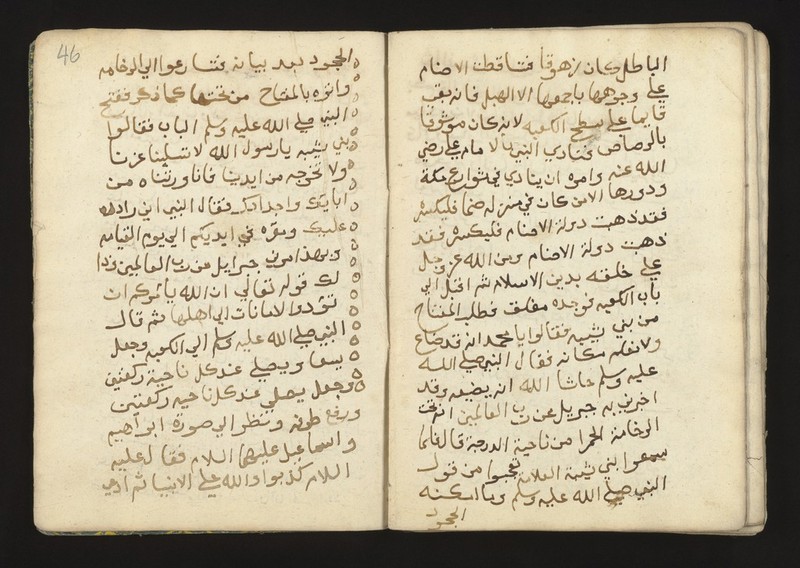 الباطل كان زهوقا فتساقطت الاصنام
على وجوهها باجمعها الا الهبل فانه بقى
قايما على سطح الكعبه لانه كان موثوقا
بالرصاص فنادي النبي بالامام علي رضي
الله عنه وامره ان ينادي في شوارع مكة
ودورها الا من كان في منزله صنما فليكسره
فقد ذهبت دولة الاصنام فليكسره فقد
ذهبت دولة الاصنام ومن الله عز وجل
على خلقه بدين الاسلام ثم اقبل الى
باب الكعبه فوجده مغلق فطلب المفتاح
من بني شيبه فقالوا يا محمد انه قد ضاع
ولا نعلم مكانه فقال النبي صلى الله
عليه وسلم حاشا الله ان يضيعه وقد
اخبرني به جبريل عن رب العالمين انه تحت
الرخامة الحمرا من ناحية الدرجة قال فلما
سمعوا بني شيبة العلامة تعجبوا من قول
النبي صلى الله عليه وسلم وما امكنه
الجحود
46
الجحود بعد بيانه فتسارعوا الي الرخامه
واتوه بالمفتاح من تحتها كما ذكر ففتح
النبي صلى الله عليه وسلم الباب فقالوا
بني شيبه يارسول الله لا تسلبنا عزنا
ولا تخرجه من ايدينا فانا ورثناه من
ابايك واجدادك فقال النبي اني راده
عليك ومقره في ايديكم الي يوم القيامه
وبهذا امرني جبرايل عن رب العالمين وذا
لك قوله تعالي ان الله يأمركم ان
تؤدوا الامانات الي اهلها ثم قال
النبي صلى الله عليه وسلم الي الكعبه وجعل
يسعا ويصلي عند كل ناحية ركعتين
وجعل يصلي عند كل ناحيه ركعتين
ورفع طرفه ونظر الي صورة ابراهيم
واسماعيل عليهما السلام فقال عليه
السلام كذبوا والله على الانبيا ثم ادي